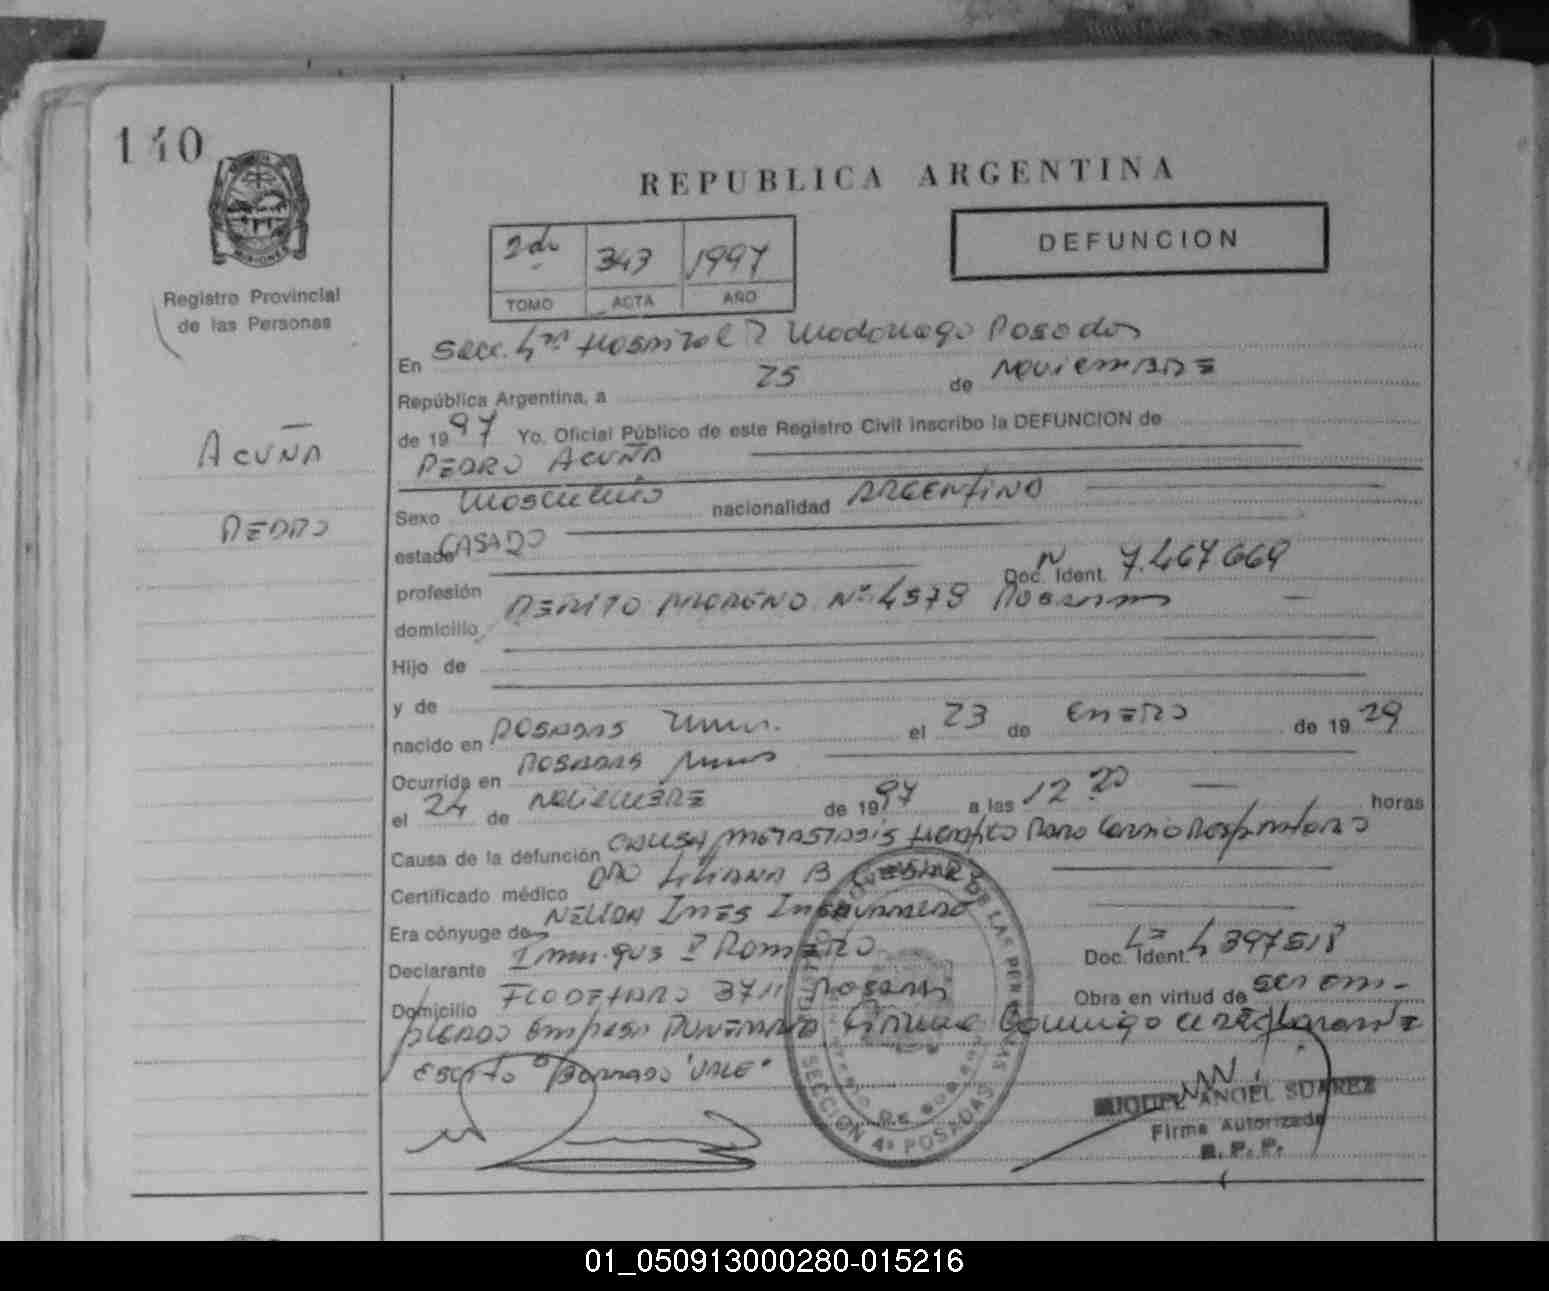 140
REPUBLICA ARGENTINA
DEFUNCION
2do 343 1997
TOMO ACTA AÑO
Registro Provincial
de las Personas
En Secc. 4ta Hospital R Madariaga Posadas
República Argentina, a 25 de Noviembre
de 1997 Yo, Oficial Público de este Registro Civil inscribo la DEFUNCION de
PEDRO ACUÑA
ACUÑA
PEDRO
Sexo Masculino nacionalidad ARGENTINA
estado CASADO
profesión Doc. Ident. 7.467669
domicilio PERITO MORENO Nº 4579 Posadas
Hijo de
y de
nacido en POSADAS el 23 de ENERO de 1929
Ocurrida en POSADAS
el 24 de NOVIEMBRE de 1997 a las 12 20 horas
Causa de la defunción CAUSA METASTASIS Hepatico Paro Cardio Respiratorio
Certificado médico LILIANA B
Era cónyuge de NELIDA INES
Declarante ROMERO Doc. Ident. 4397518
Domicilio Posadas Obra en virtud de ser em-
pleado Empresa FUNERARIA
Escrito S/Borrado "VALE"
REGISTRO DE LAS PERSONAS
SECCION 4ª POSADAS
MIGUEL ANGEL SUAREZ
Firma Autorizada
R. P. P.
01_050913000280-015216